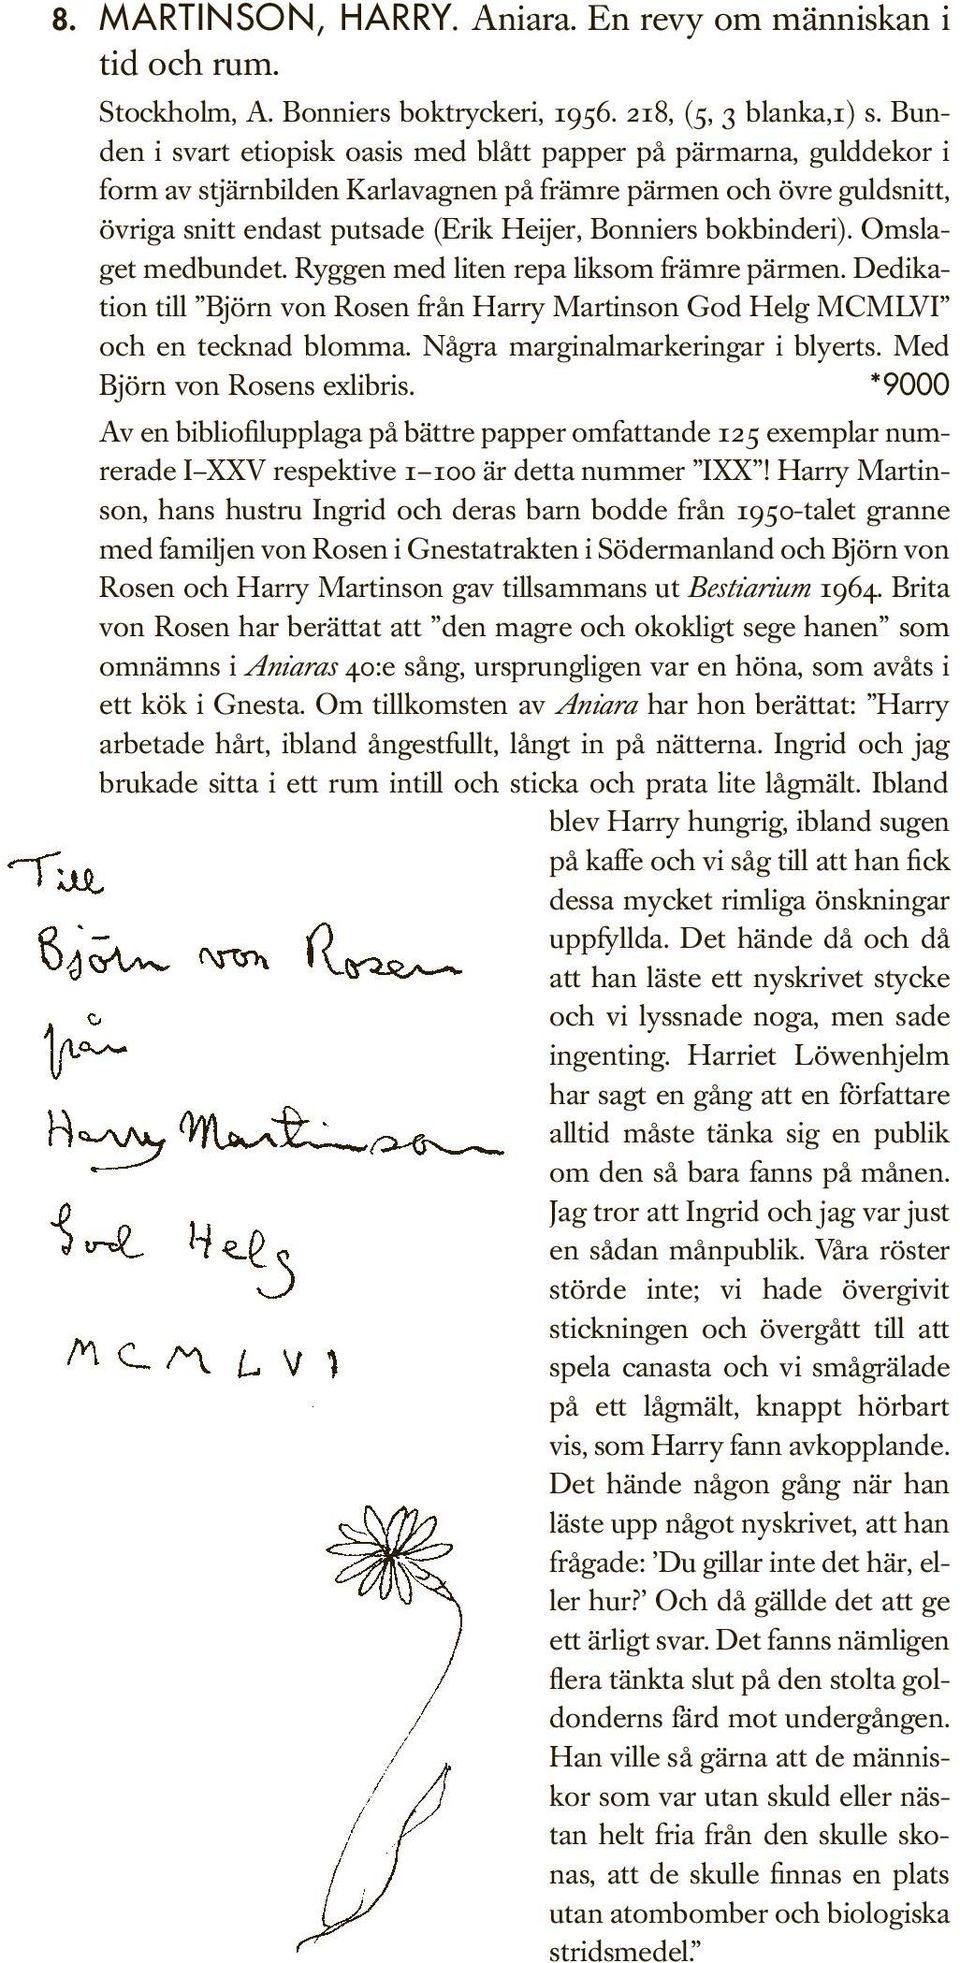 8. MARTINSON, HARRY. Aniara. En revy om människan i
tid och rum.
Stockholm, A. Bonniers boktryckeri, 1956. 218, (5, 3 blanka,1) s. Bun-
den i svart etiopisk oasis med blått papper på pärmarna, gulddekor i
form av stjärnbilden Karlavagnen på främre pärmen och övre guldsnitt,
övriga snitt endast putsade (Erik Heijer, Bonniers bokbinderi). Omsla-
get medbundet. Ryggen med liten repa liksom främre pärmen. Dedika-
tion till ”Björn von Rosen från Harry Martinson God Helg MCMLVI”
och en tecknad blomma. Några marginalmarkeringar i blyerts. Med
Björn von Rosens exlibris. *9000
Av en bibliofilupplaga på bättre papper omfattande 125 exemplar num-
rerade I–XXV respektive 1–100 är detta nummer ”IXX”! Harry Martin-
son, hans hustru Ingrid och deras barn bodde från 1950-talet granne
med familjen von Rosen i Gnestatrakten i Södermanland och Björn von
Rosen och Harry Martinson gav tillsammans ut Bestiarium 1964. Brita
von Rosen har berättat att ”den magre och okokligt sege hanen” som
omnämns i Aniaras 40:e sång, ursprungligen var en höna, som avåts i
ett kök i Gnesta. Om tillkomsten av Aniara har hon berättat: ”Harry
arbetade hårt, ibland ångestfullt, långt in på nätterna. Ingrid och jag
brukade sitta i ett rum intill och sticka och prata lite lågmält. Ibland
blev Harry hungrig, ibland sugen
på kaffe och vi såg till att han fick
dessa mycket rimliga önskningar
uppfyllda. Det hände då och då
att han läste ett nyskrivet stycke
och vi lyssnade noga, men sade
ingenting. Harriet Löwenhjelm
har sagt en gång att en författare
alltid måste tänka sig en publik
om den så bara fanns på månen.
Jag tror att Ingrid och jag var just
en sådan månpublik. Våra röster
störde inte; vi hade övergivit
stickningen och övergått till att
spela canasta och vi smågrälade
på ett lågmält, knappt hörbart
vis, som Harry fann avkopplande.
Det hände någon gång när han
läste upp något nyskrivet, att han
frågade: ’Du gillar inte det här, el-
ler hur?’ Och då gällde det att ge
ett ärligt svar. Det fanns nämligen
flera tänkta slut på den stolta gol-
donderns färd mot undergången.
Han ville så gärna att de männis-
kor som var utan skuld eller näs-
tan helt fria från den skulle sko-
nas, att de skulle finnas en plats
utan atombomber och biologiska
stridsmedel.”
Till
Björn von Rosen
från
Harry Martinson
God Helg
MCMLVI